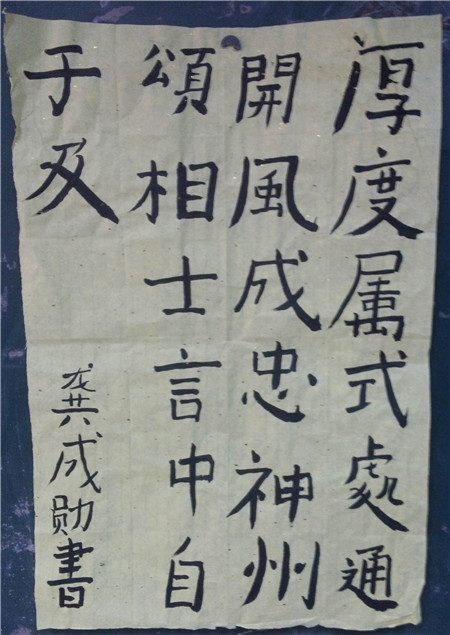 厚度属式處通
開風成忠神州
頌相士言中自
于及
龚成勋書